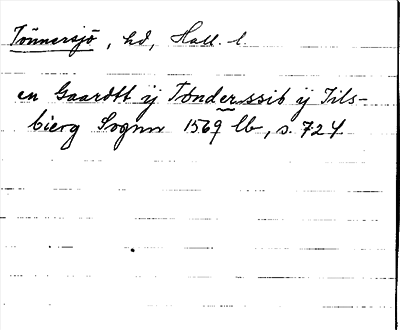 Tönnersjö, hd, Hall. l.
en Gaardtt ij Tønderssiö ij Tils-
bierg Sognn 1569 lb, s. 724